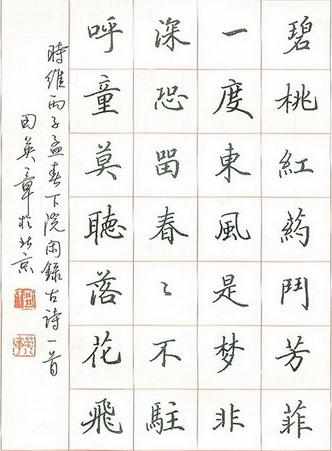 碧桃紅药鬥芳菲
一度東風是梦非
深恐畱春〻不駐
呼童莫聽落花飛
時維丙子孟春下浣闲錄古詩一首
田英章於北京